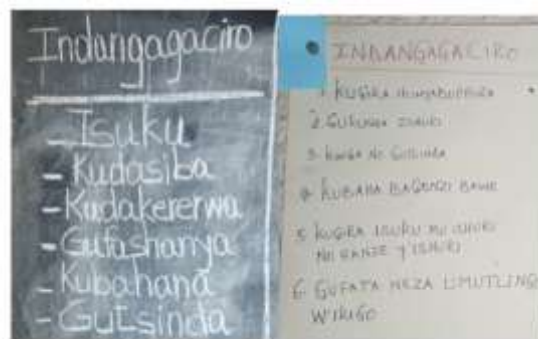 Indangagaciro
- Isuku
- Kudasiba
- Kudakererwa
- Gufashanya
- Kubahana
- Gutsinda
INDANGAGACIRO
1 KUGIRA
2. GUKUNDA ISHURI
3. KWIGA NO GUTSINDA
4 KUBAHA BAGENZI BAWE
5 KUGIRA ISUKU MU ISHURI
NO HANZE Y'ISHURI
6. GUFATA NEZA UMUTUNGO
W'IKIGO